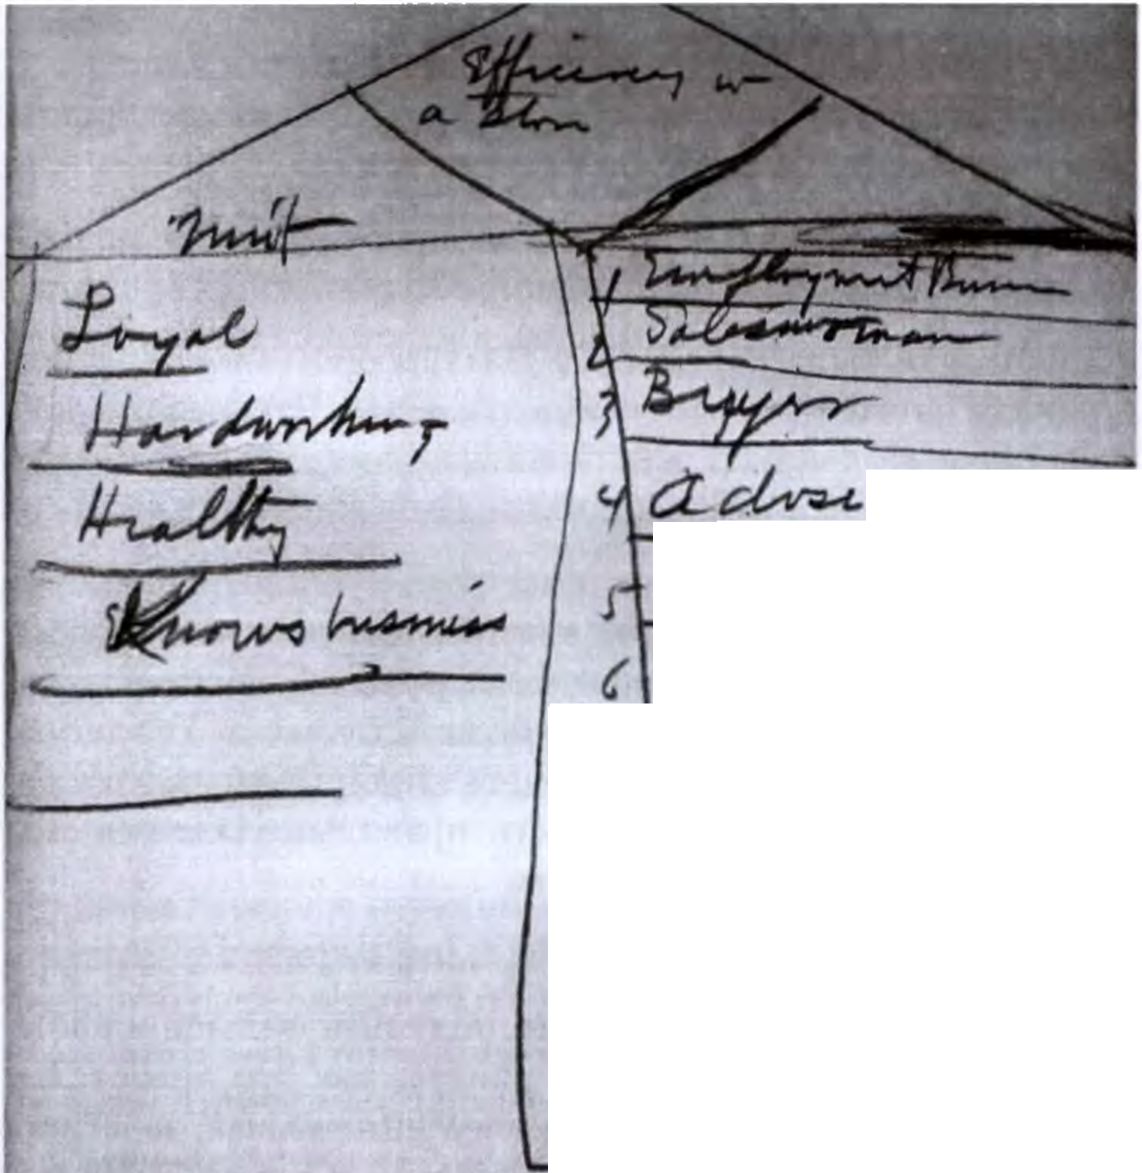 Efficiency in
a Store
Merit
Loyal
Hardworking
Healthy
Knows business
1 Employment
2 Saleswoman
3 Buyer
4 Advise
5
6